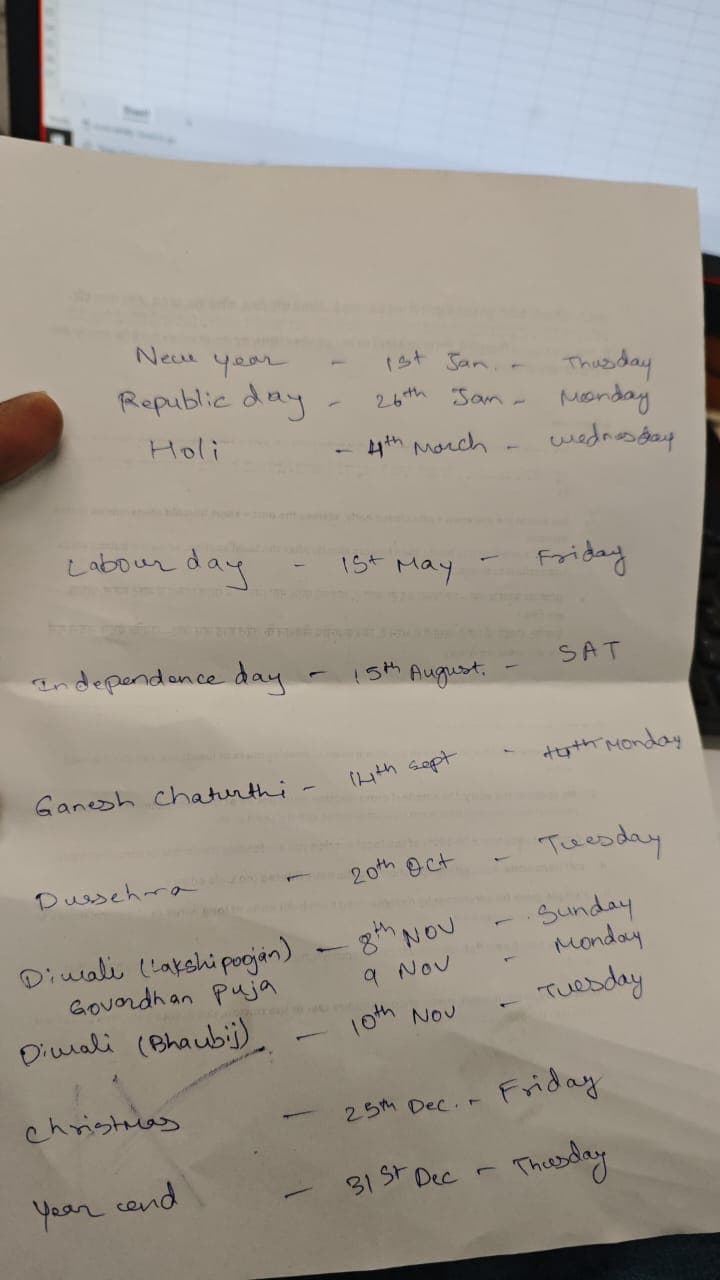 New year - 1st Jan. - Thusday
Republic day - 26th Jan - Monday
Holi - 4th March - wednesday
Labour day - 1st May - Friday
Independence day - 15th August. - SAT
Ganesh Chaturthi - 14th Sept - Monday
Dussehra - 20th Oct - Tuesday
Diwali (Lakshipoojan) - 8th NOV - Sunday
Govardhan Puja 9 NOV - Monday
Diwali (Bhaubij) - 10th Nov - Tuesday
Christmas - 25th Dec. - Friday
Year end - 31st Dec - Thusday